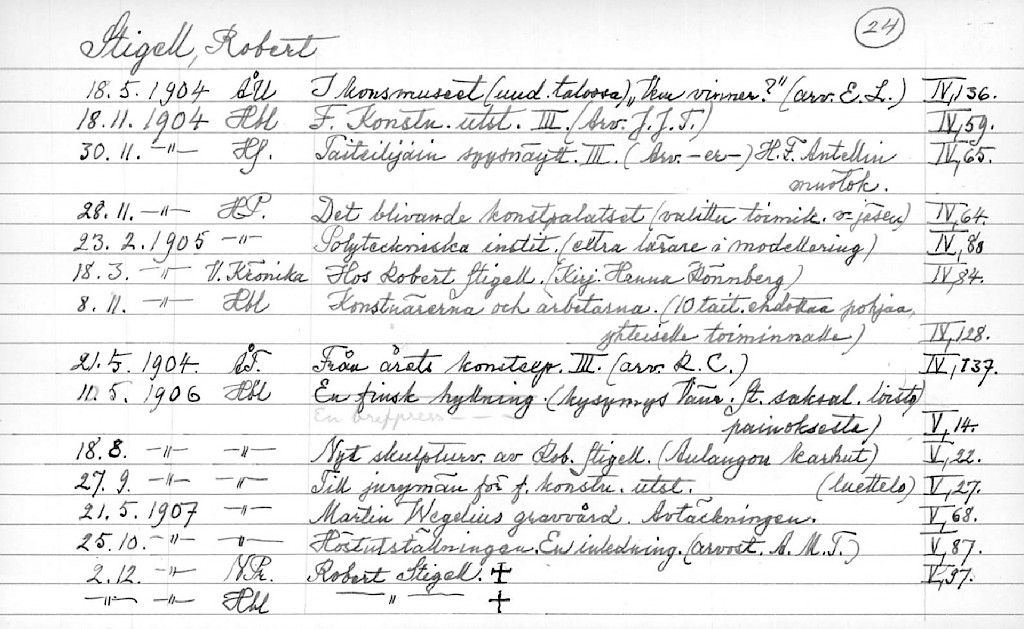 24
Stigell, Robert
18.5.1904 ÅU I konsmuseet (uud. talossa) „Hur vinner?" (arv. E. L.) IV, 136.
18.11.1904 Hbl F. Konstn. utst. III. (Arv. J. J. T.) IV, 59.
30.11. -"- Taiteilijain syysnäytt. III. (Arv. -er-) H. F. Antellin IV, 65.
muotok.
28.11. -"- HP. Det blivande konstpalatset (valittu toimik. v-jäsen) IV, 64.
23.2.1905 -"- Polyteckniska instit. (extra lärare i modellering) IV, 80
18.3. -"- V. Krönika Hos Robert Stigell. (Kirj. Hanna Rönnberg) IV, 84.
8.11. -"- Hbl Konstnärerna och arbetarna. (10 tait. ehdottaa pohjaa,
yhteiselle toiminnalle) IV, 128.
21.5.1904. ÅT. Från årets konstexp. III. (arv. R. C.) IV, 137.
11.5 1906 Hbl En finsk hyllning (kysymys Vänr. St. saksal. loisto
painoksesta) V, 14.
18.8. -"- -"- Nytt skulpturv. av Rob. Stigell. (Aulangon karhut) V, 22.
27.9. -"- -"- Till jurymän för f. konstn. utst. (luettelo) V, 27.
21.5.1907 -"- Martin Wegelius gravvård. Avtäckningen. V, 68.
25.10. -"- -"- Höstutställningen. En inledning. (arvost. A. M. T.) V, 87.
2.12. -"- N.Pr. Robert Stigell. ✝ V, 97.
-"- -"- Hbl -"- ✝